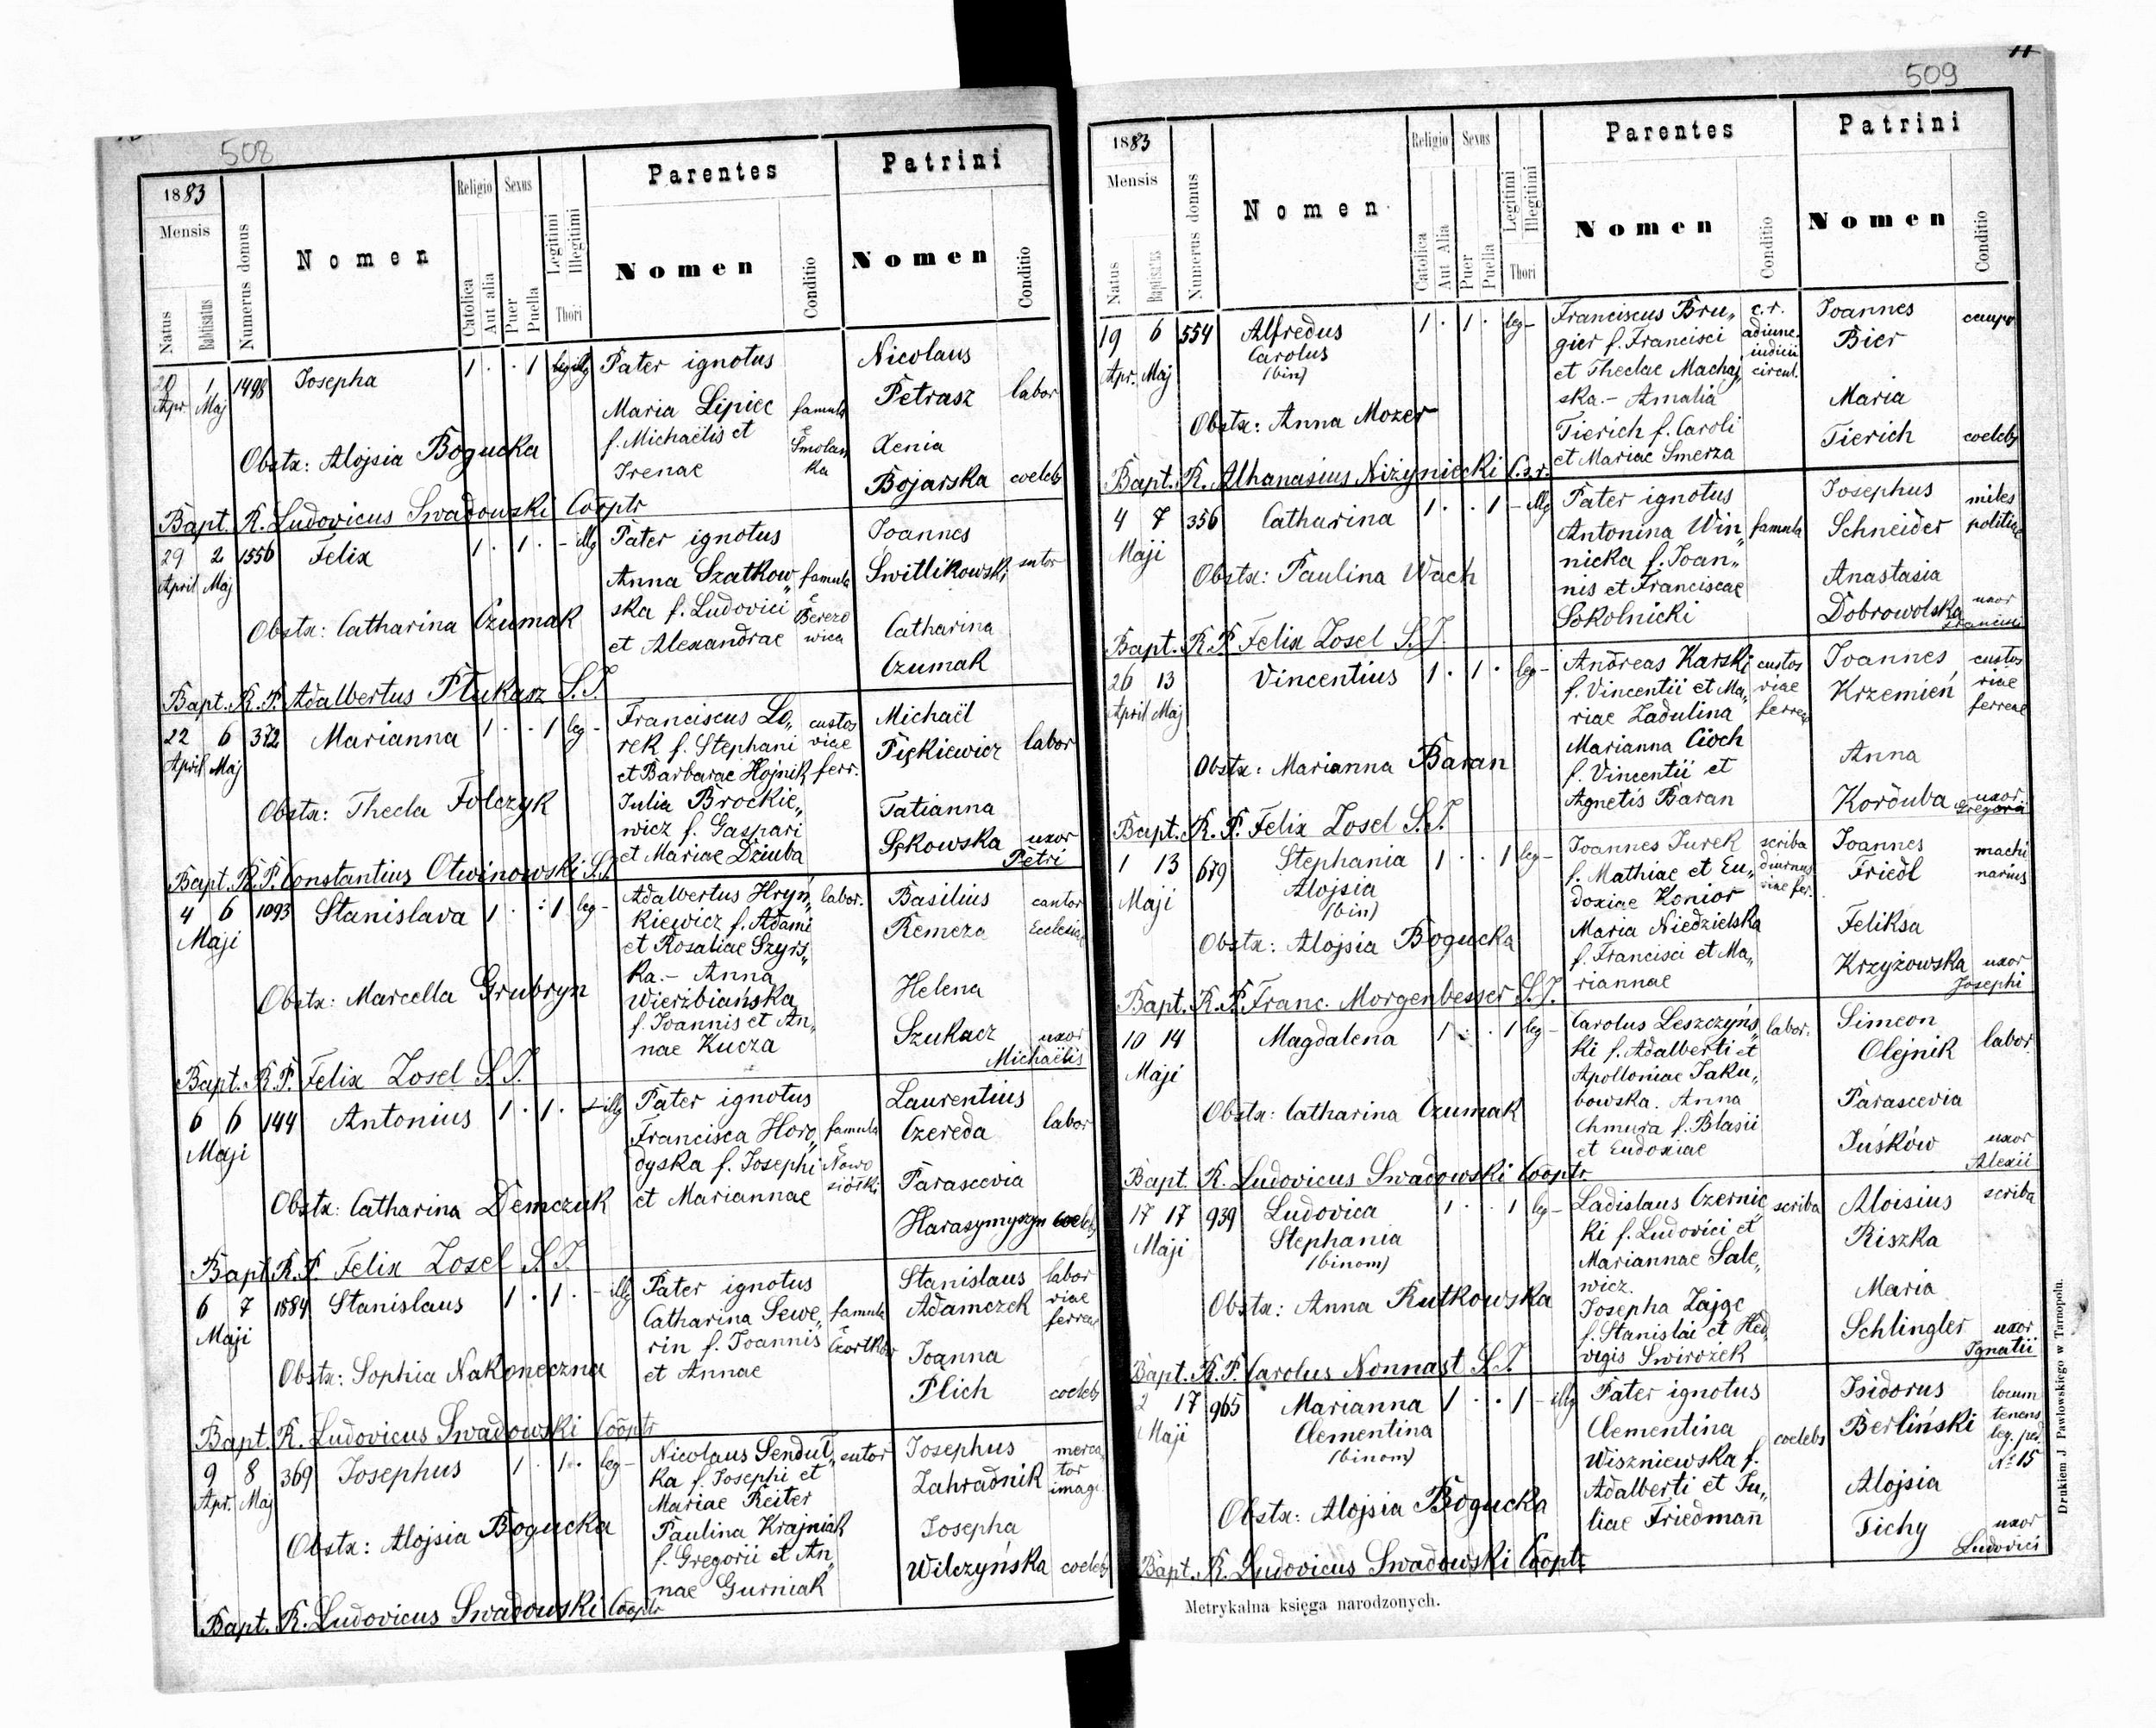 508
1883
Mensis
Natus
Babtisatus
Numerus domus
Nomen
Religio
Catolica
Aut alia
Sexus
Puer
Puella
Legitimi
Illegitimi
Thori
Parentes
Nomen
Conditio
Patrini
Nomen
Conditio
20 1 1498 Josepha 1 . . 1 illg Pater ignotus Nicolaus
Apr Maj Maria Lipiec famula Petrasz labor
f. Michaëlis et e Smolan Xenia
Obstx: Alojsia Bogucka Irenae ka Bojarska coelebs
Bapt. R. Ludovicus Swadowski Cooptr
29 2 1556 Felix 1 . 1 . - illg Pater ignotus Joannes
April Maj Anna Szatkow„ famula Switlikowski sutor
ska f. Ludovici e Berezo Catharina
Obstx: Catharina Czumak et Alexandrae wica Czumak
Bapt. R. P. Adalbertus Ptukasz S.J.
22 6 372 Marianna 1 . . 1 leg - Franciscus Lo„ custos Michaël
April Maj rek f. Stephani viae Piękiewicz labor
et Barbarae Hojnik ferr.
Obstx: Thecla Folczyk Julia Brockie„ Tatianna
wicz f. Gaspari Sękowska uxor
et Mariae Dziuba Petri
Bapt. R. P. Constantius Otwinowski S.J.
4 6 1093 Stanislava 1 . . 1 leg - Adalbertus Hryń„ labor. Basilius cantor
Maji kiewicz f. Adami Remeza Ecclesiae
et Rosaliae Szyrs„
ka.- Anna Helena
Obstx: Marcella Grubryn Wierzbiańska
f. Joannis et An„ Szukacz uxor
nae Kucza Michaëlis
Bapt. R. P. Felix Zosel S.J.
6 6 144 Antonius 1 . 1 . - illg Pater ignotus Laurentius
Maji Francisca Horo„ famula Czereda labor
dyska f. Josephi e Nowo Parascevia
Obstx: Catharina Demczuk et Mariannae siółki Harasymyszyn coelebs
Bapt. R. P. Felix Zosel S.J.
6 7 1884 Stanislaus 1 . 1 . - illg Pater ignotus Stanislaus labor
Maji Catharina Sewe„ famula Adamczek viae ferreae
rin f. Joannis e Czortków Joanna
Obstx: Sophia Nakoneczna et Annae Plich coelebs
Bapt. R. Ludovicus Swadowski Cooptr
9 8 369 Josephus 1 . 1 . leg - Nicolaus Sendut„ sutor Josephus merca„
Apr. Maj ka f. Josephi et Zahradnik tor
Mariae Reiter imag.
Obstx: Alojsia Bogucka Paulina Krajniak Josepha
f. Gregorii et An„ Wilczyńska coelebs
nae Gurniak
Bapt. R. Ludovicus Swadowski Cooptr
509
1883
Mensis
Natus
Baptisatus
Numerus domus
Nomen
Religio
Catolica
Aut Alia
Sexus
Puer
Puella
Legitimi
Illegitimi
Thori
Parentes
Nomen
Conditio
Patrini
Nomen
Conditio
19 6 554 Alfredus 1 . 1 . leg - Franciscus Bru„ c.r. Joannes caupo
Apr. Maj Carolus gier f. Francisci adiunc. Bier
(bin) et Theclae Machaj„ iudicii
ska.- Amalia circul. Maria
Obstx: Anna Mozer Tierich f. Caroli Tierich coelebs
et Mariae Smerza
Bapt. R. Athanasius Niżyniecki
4 7 356 Catharina 1 . . 1 - illg Pater ignotus Josephus miles
Maji Antonina Win„ famula Schneider politiae
nicka f. Joan„
Obstx: Paulina Wach nis et Franciscae Anastasia
Sokolnicki Dobrowolska uxor
Bapt. R. P. Felix Zosel S.J.
26 13 Vincentius 1 . 1 . leg - Andreas Karski custos Joannes custos
April Maj f. Vincentii et Ma„ viae Krzemień viae
riae Zadulina ferreae ferreae
Marianna Cioch Anna
Obstx: Marianna Baran f. Vincentii et
Agnetis Baran Korduba uxor Gregorii
Bapt. R. P. Felix Zosel S.J.
1 13 679 Stephania 1 . . 1 leg - Joannes Jurek scriba Joannes machi
Maji Alojsia f. Mathiae et Eu„ diurnus Friedl narius
(bin) doxiae Konior viae fer.
Maria Niedzielska Feliksa
Obstx: Alojsia Bogucka f. Francisci et Ma„ Krzyżowska uxor
riannae Josephi
Bapt. R. P. Franc. Morgenbesser S.J.
10 14 Magdalena 1 . . 1 leg - Carolus Leszczyńs„ labor. Simeon
Maji ki f. Adalberti et Olejnik labor.
Apolloniae Jaku„
bowska. Anna Parascevia
Obstx: Catharina Czumak Chmura f. Blasii Juśków uxor
et Eudoxiae Alexii
Bapt. R. Ludovicus Swadowski Cooptr.
17 17 939 Ludovica 1 . . 1 leg - Ladislaus Czernic„ scriba Aloisius scriba
Maji Stephania ki f. Ludovici et Riszka
(binom) Mariannae Sale„
wicz. Maria
Obstx: Anna Rutkowska Josepha Zając
f. Stanislai et Hed„ Schlingler uxor
vigis Swirożek Ignatii
Bapt. R. P. Carolus Nonnast S.J.
2 17 965 Marianna 1 . . 1 - illg Pater ignotus Isidorus locum
Maji Clementina Clementina coelebs Berliński tenens
(binom) Wiszniewska f. leg. ped. № 15
Adalberti et Ju„ Alojsia
Obstx: Alojsia Bogucka liae Friedmañ Tichy uxor
Ludovici
Bapt. R. Ludovicus Swadowski Cooptr
Metrykalna księga narodzonych.
Drukiem J. Pawlowskiego w Tarnopolu.